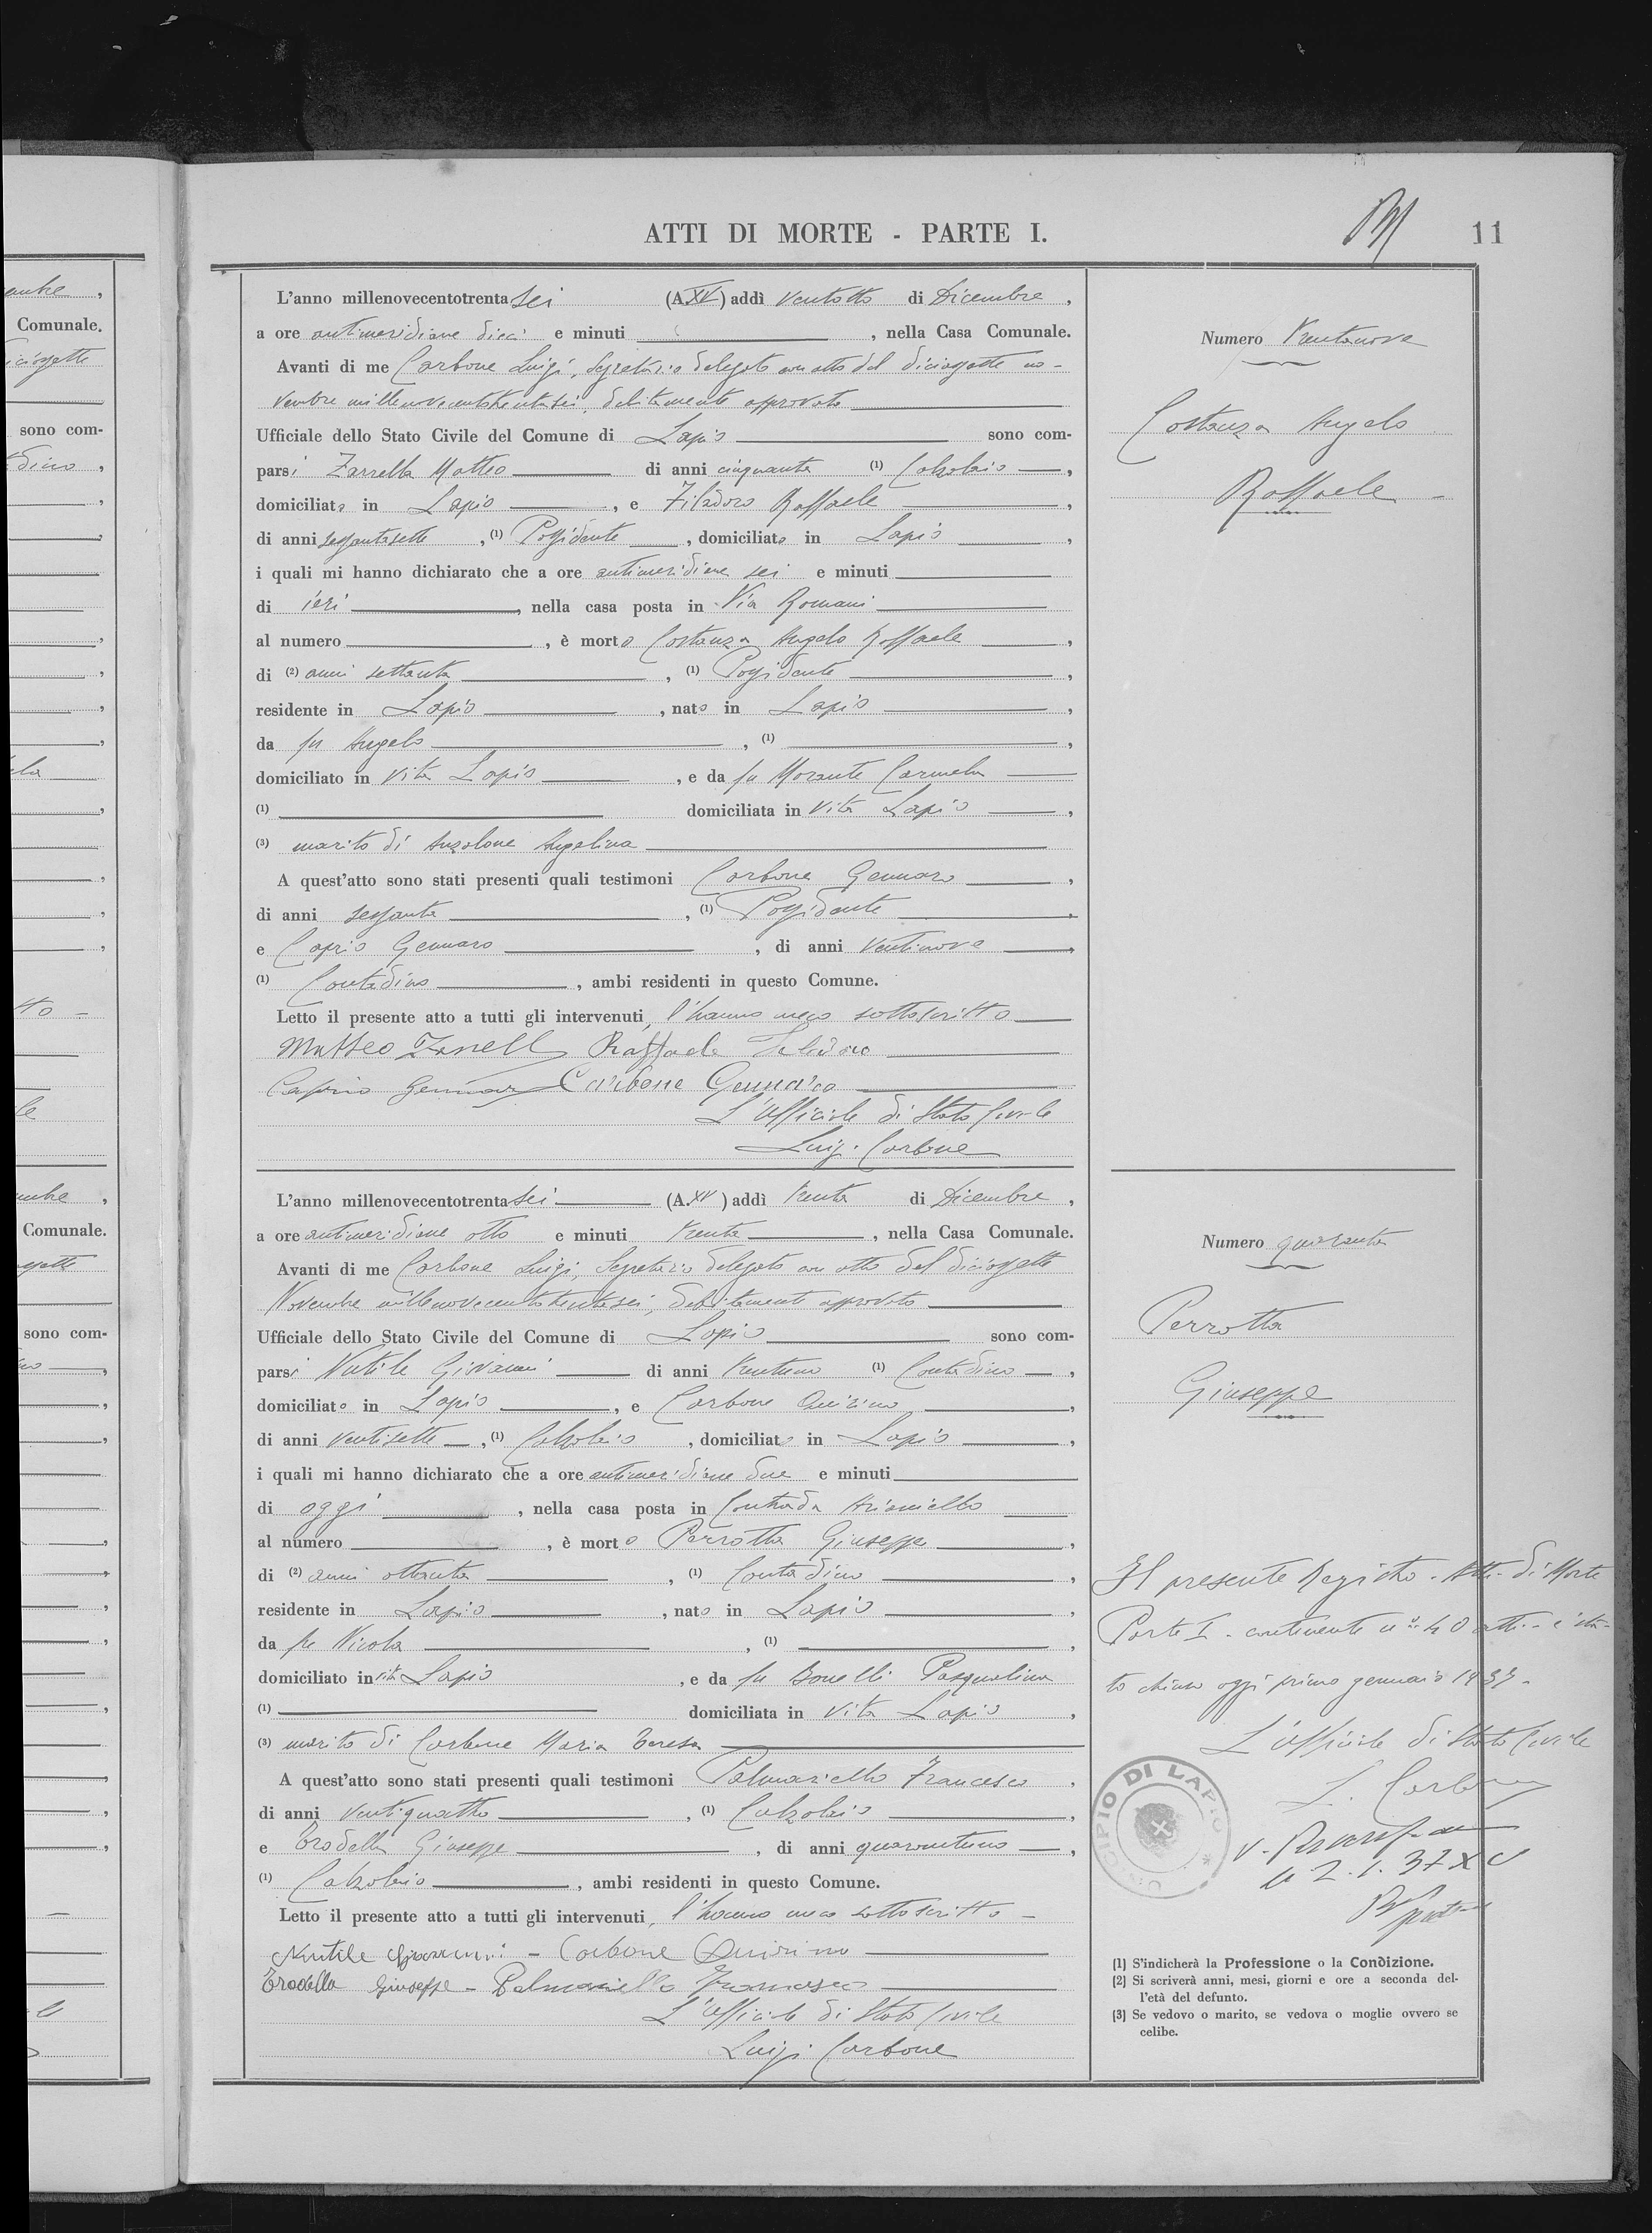 ATTI DI MORTE - PARTE I.
11
L'anno millenovecentotrentasei (A. XV) addì ventotto di Dicembre,
a ore antimeridiane dieci e minuti , nella Casa Comunale.
Avanti di me Carbone Luigi, Segretario delegato con atto del diciassette no-
vembre millenovecentotrentasei, debitamente approvato
Ufficiale dello Stato Civile del Comune di Lapio sono com-
parsi Zarrella Matteo di anni cinquanta (1) Calzolaio,
domiciliato in Lapio, e Filadoro Raffaele,
di anni sessantasette, (1) Possidente, domiciliato in Lapio,
i quali mi hanno dichiarato che a ore antimeridiane sei e minuti
di ieri, nella casa posta in Via Romani
al numero , è morto Costanza Angelo Raffaele,
di (2) anni settanta, (1) Possidente,
residente in Lapio, nato in Lapio,
da fu Angelo, (1) ,
domiciliato in vita Lapio, e da fu Morante Carmela
(1) domiciliata in vita Lapio,
(3) marito di Anzolone Angelina
A quest'atto sono stati presenti quali testimoni Carbone Gennaro,
di anni sessanta, (1) Possidente,
e Caprio Gennaro, di anni ventinove,
(1) Contadino, ambi residenti in questo Comune.
Letto il presente atto a tutti gli intervenuti, l'hanno meco sottoscritto
Matteo Zarrella Raffaele Filadoro
Caprio Gennaro Carbone Gennaro
L'Ufficiale di Stato Civile
Luigi Carbone
Numero Trentanove
Costanza Angelo
Raffaele
L'anno millenovecentotrentasei (A. XV) addì trenta di Dicembre,
a ore antimeridiane otto e minuti trenta, nella Casa Comunale.
Avanti di me Carbone Luigi, Segretario delegato con atto del diciassette
Novembre millenovecentotrentasei, debitamente approvato
Ufficiale dello Stato Civile del Comune di Lapio sono com-
parsi Nutile Giovanni di anni trentuno (1) Contadino,
domiciliato in Lapio, e Carbone Quirino,
di anni ventisette, (1) Calzolaio, domiciliato in Lapio,
i quali mi hanno dichiarato che a ore antimeridiane due e minuti
di oggi, nella casa posta in Contrada Arianiello
al numero , è morto Perrotta Giuseppe,
di (2) anni ottanta, (1) Contadino,
residente in Lapio, nato in Lapio,
da fu Nicola, (1) ,
domiciliato in vita Lapio, e da fu Bonelli Pasqualina
(1) domiciliata in vita Lapio,
(3) marito di Carbone Maria Teresa
A quest'atto sono stati presenti quali testimoni Palmariello Francesco,
di anni ventiquattro, (1) Calzolaio,
e Trodella Giuseppe, di anni quarantuno,
(1) Calzolaio, ambi residenti in questo Comune.
Letto il presente atto a tutti gli intervenuti, l'hanno meco sottoscritto -
Nutile Giovanni - Carbone Quirino
Trodella Giuseppe - Palmariello Francesco
L'Ufficiale di Stato Civile
Luigi Carbone
Numero quaranta
Perrotta
Giuseppe
Il presente Registro - Atti di Morte
Parte I - contenente n° 40 atti - è sta-
to chiuso oggi primo gennaio 1937 -
L'Ufficiale di Stato Civile
L. Carbone
MUNICIPIO DI LAPIO
2.1.37 XV
(1) S'indicherà la Professione o la Condizione.
(2) Si scriverà anni, mesi, giorni e ore a seconda del-
l'età del defunto.
(3) Se vedovo o marito, se vedova o moglie ovvero se
celibe.
sono com-
Comunale.
sono com-
Comunale.